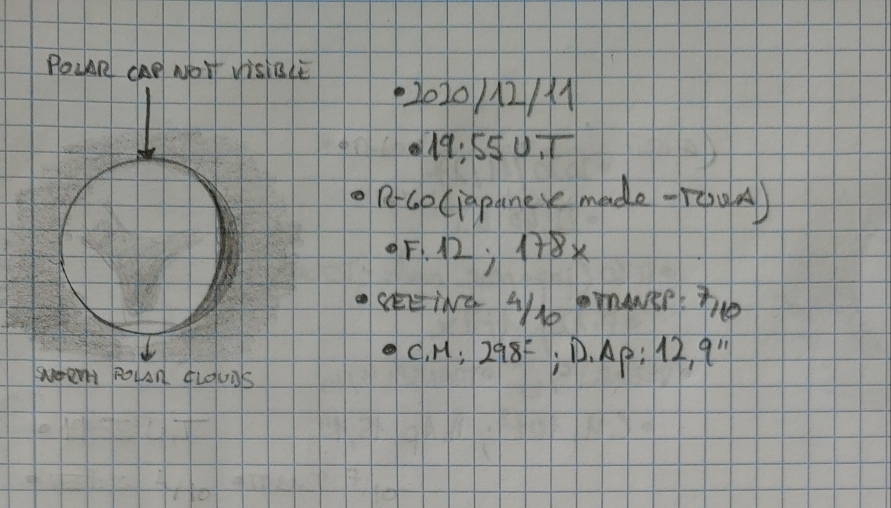 POLAR CAP NOT VISIBLE
• 2020/12/11
• 19:55 U.T
• R-60 (japanese made - TOWA)
• F. 12 ; 178x
• SEEING 4/10 • TRANSP: 7/10
• C.M: 298° ; D.Ap: 12,9"
NORTH POLAR CLOUDS